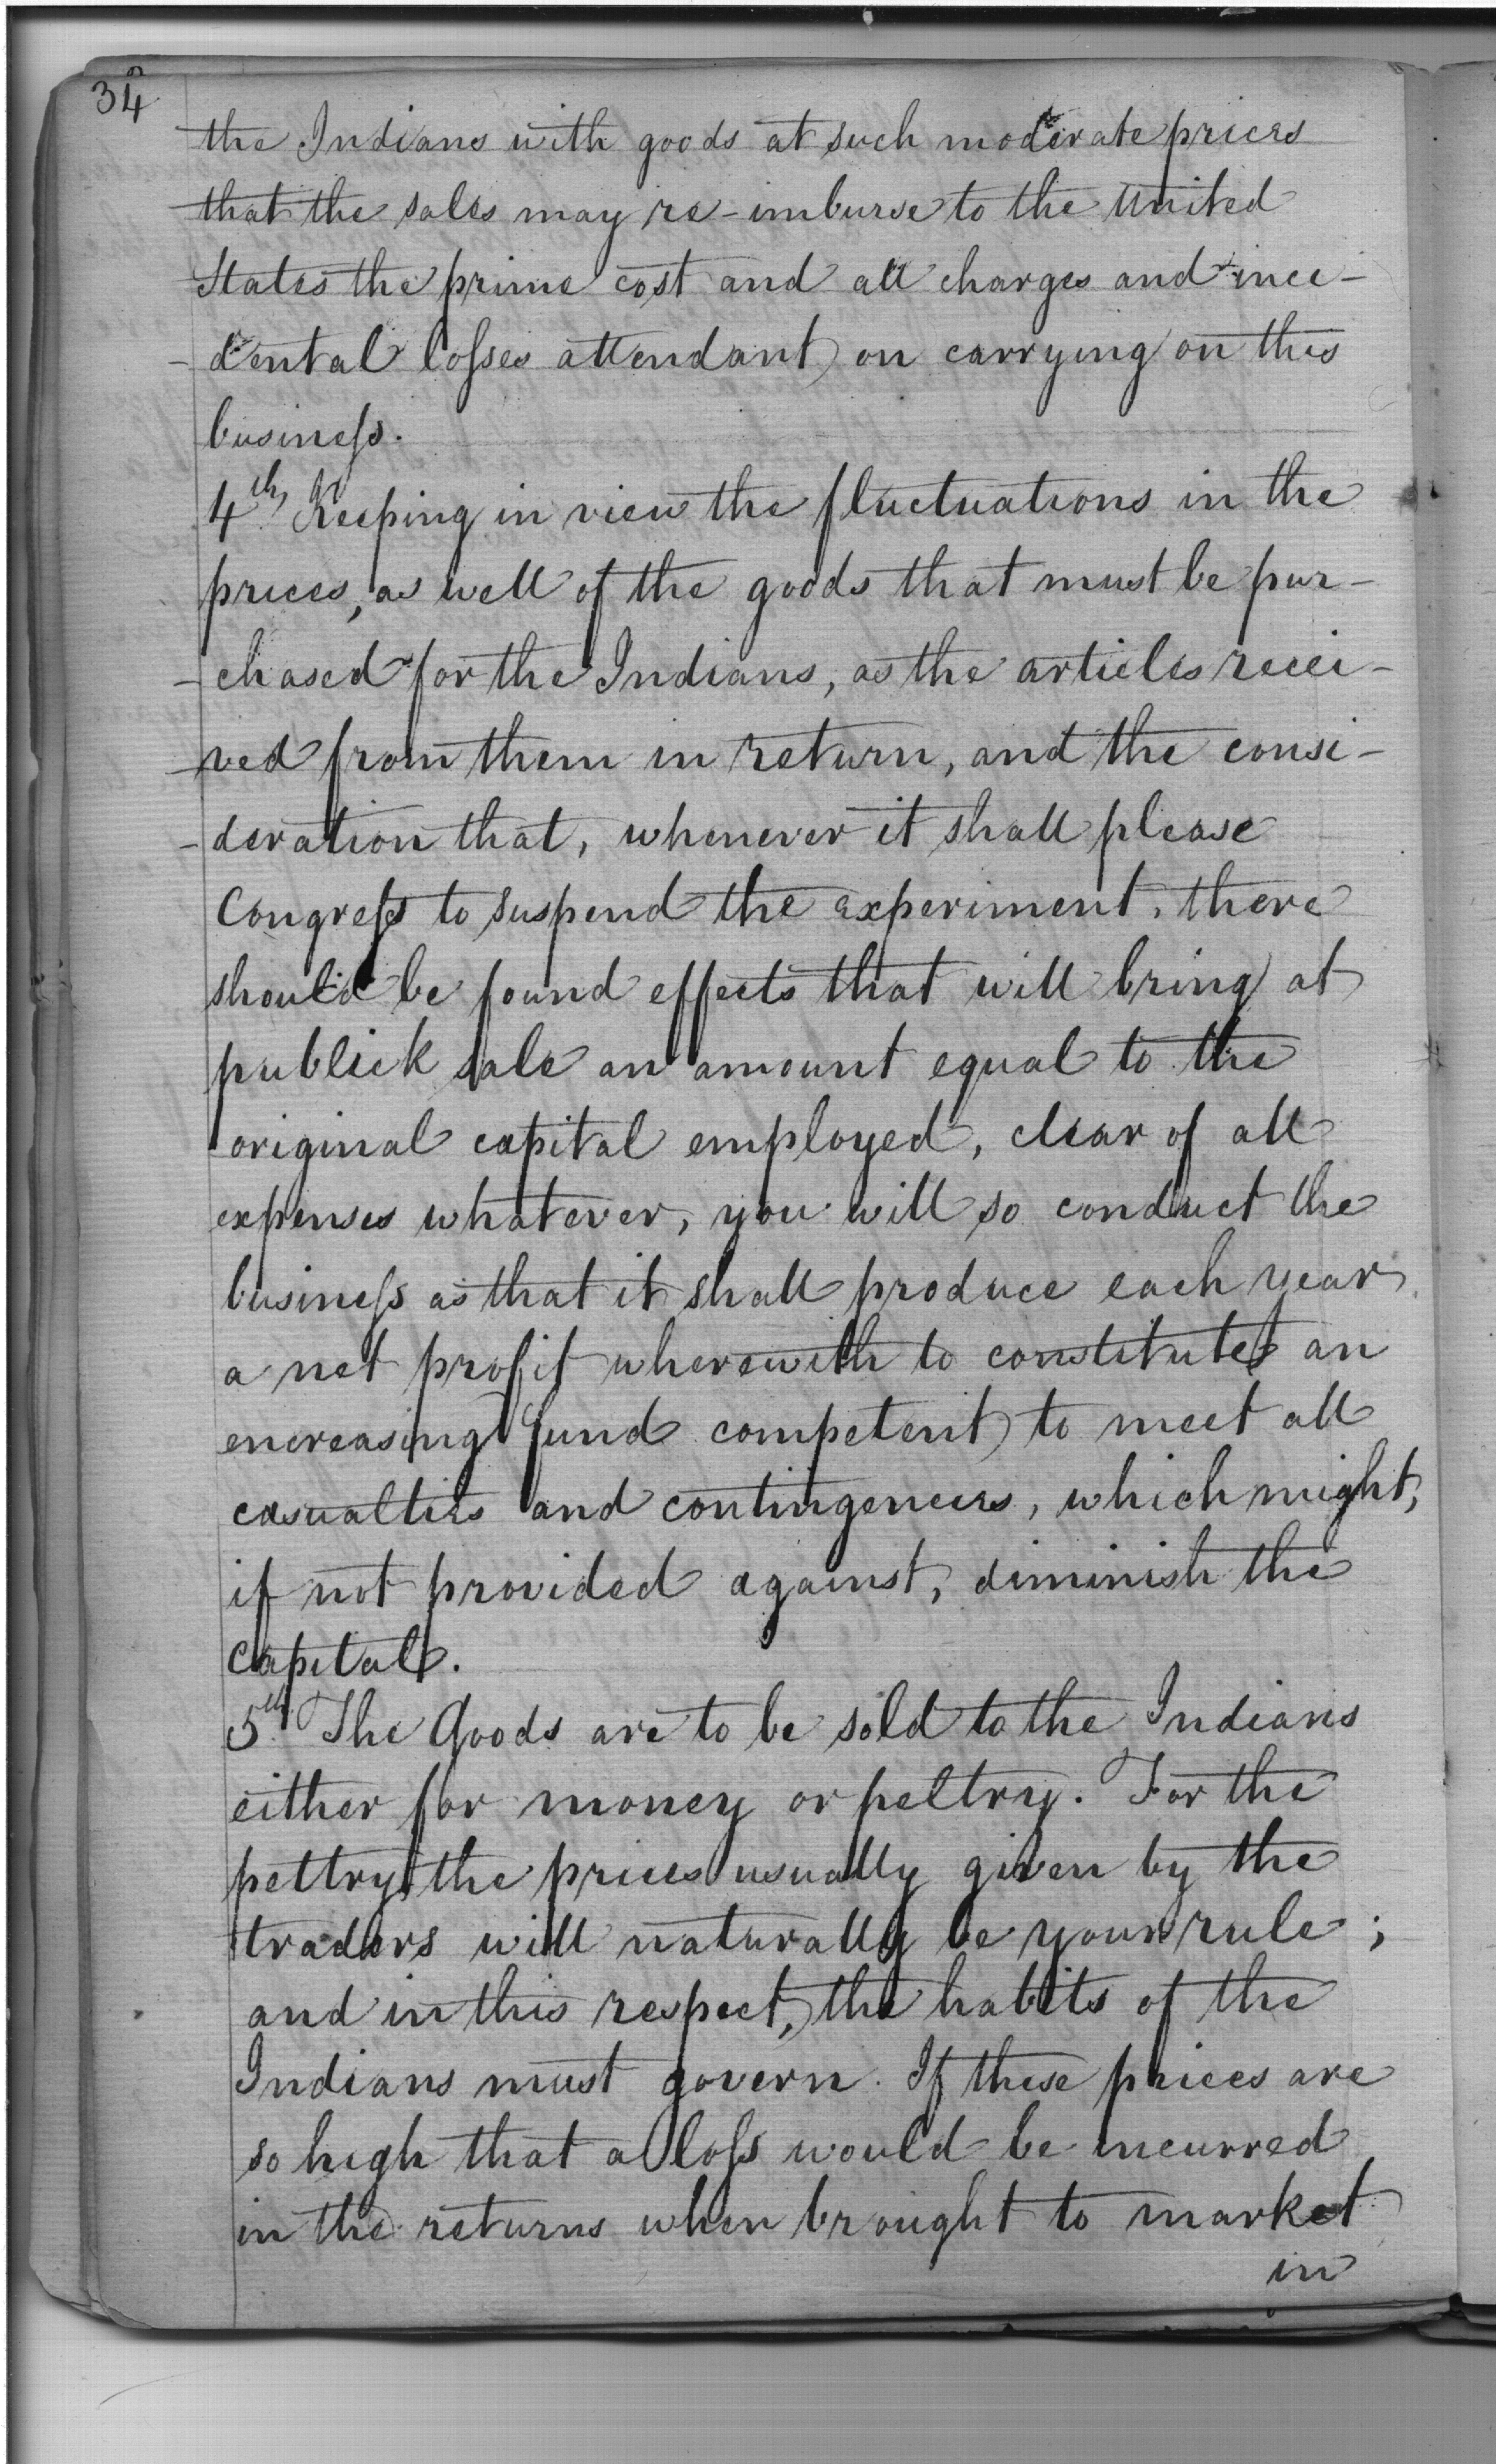 34
the Indians with goods at such moderate prices
that the sales may re-imburse to the United
States the prime cost and all charges and inci-
-dental losses attendant on carrying on this
business.
4th. Keeping in view the fluctuations in the
prices, as well of the goods that must be pur-
-chased for the Indians, as the articles recei-
-ved from them in return, and the consi-
-deration that, whenever it shall please
Congress to suspend the experiment, there
should be found effects that will bring at
publick sale an amount equal to the
original capital employed, clear of all
expenses whatever, you will so conduct the
business as that it shall produce each year
a net profit wherewith to constitute an
encreasing fund competent to meet all
casualties and contingencies, which might,
if not provided against, diminish the
Capital.
5th. The Goods are to be sold to the Indians
either for money or peltry. For the
peltry, the prices usually given by the
traders will naturally be your rule;
and in this respect, the habits of the
Indians must govern. If these prices are
so high that a loss would be incurred
in the returns when brought to market
in